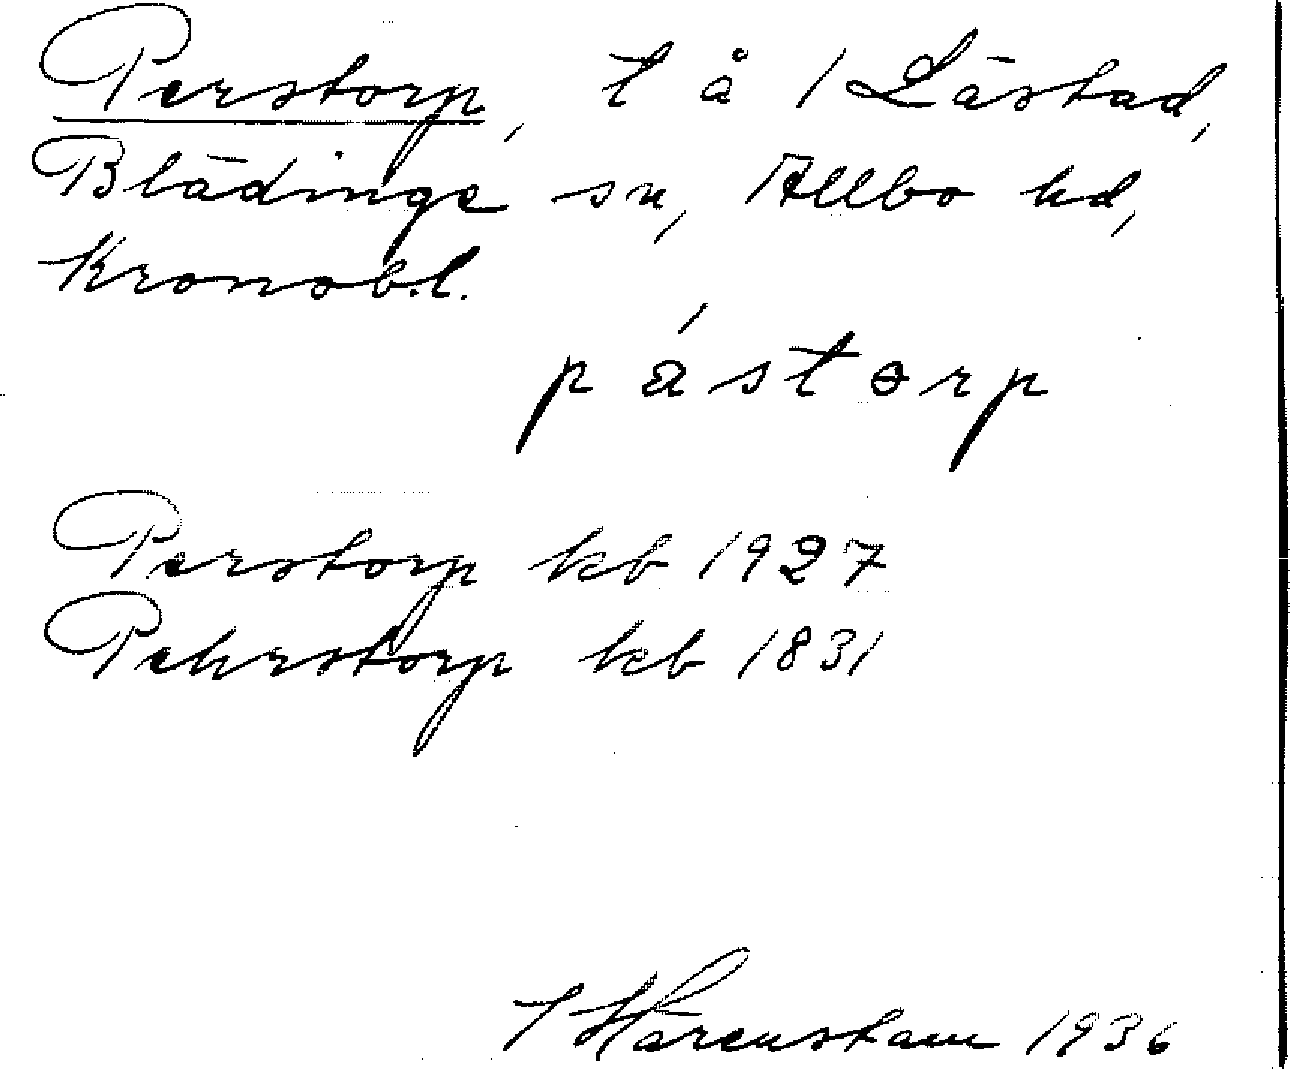 Perstorp, t å 1 Låstad,
Blädinge sn, Allbo hd,
Kronob.l.
pástorp
Perstorp kb 1927
Pehrstorp kb 1831
Härenstam 1936